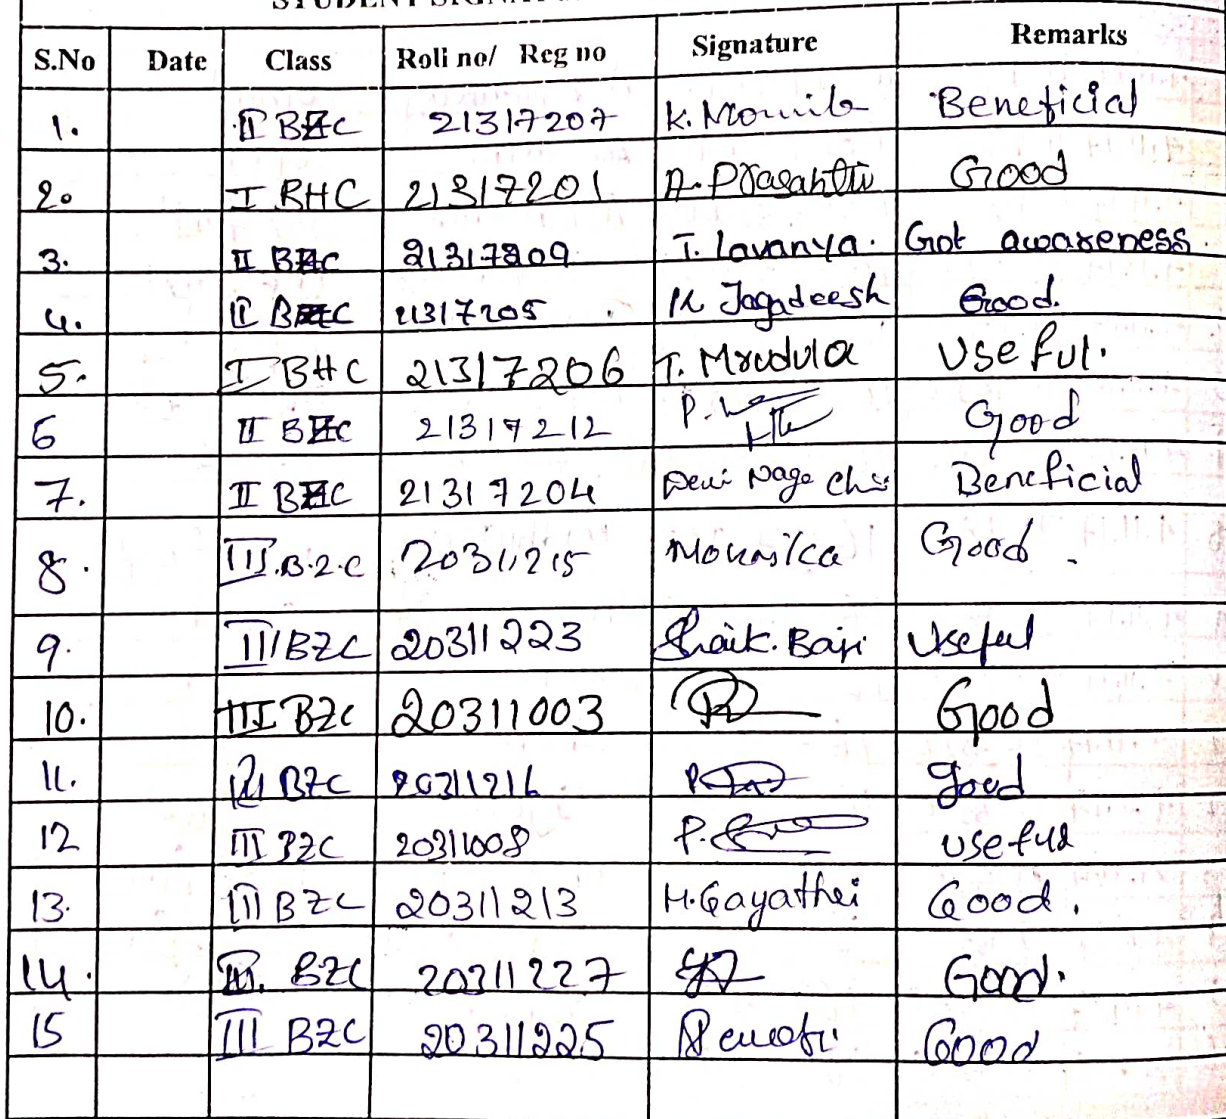 S.No Date Class Roll no/ Reg no Signature Remarks
1. II BZC 21317207 K. Mounika Beneficial
2. I BHC 21317201 A. Prasanthi Good
3. II BZC 21317209 T. Lavanya. Got awareness.
4. II BZC 21317205 K Jagadeesh Good.
5. I BHC 21317206 T. Mrudula Useful.
6 II BZC 21317212 P. Good
7. II BZC 21317204 Devi Naga Beneficial
8. III.B.Z.C 20311215 Mounika Good.
9. III BZC 20311223 Shaik. Baji Useful
10. III BZC 20311003 Good
11. III BZC 20311216 Good
12 III BZC 20311008 P. useful
13. III BZC 20311213 H. Gayathri Good.
14. III. BZC 20311227 Good.
15 III BZC 20311225 Revathi Good